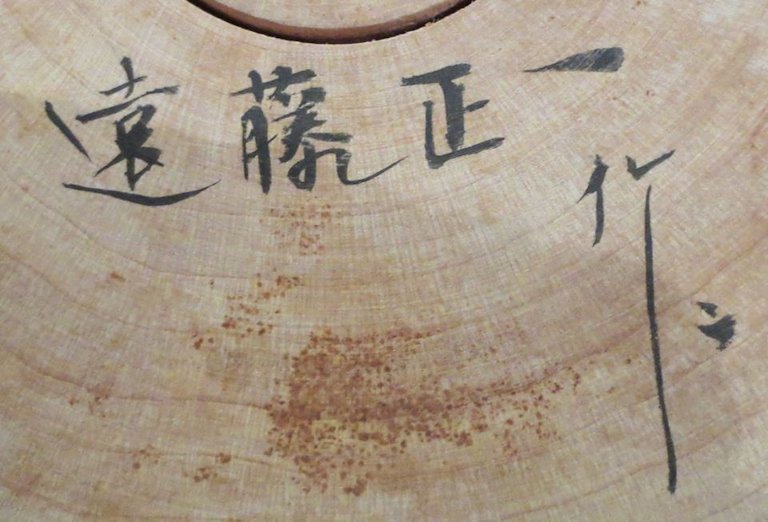 遠藤正一作